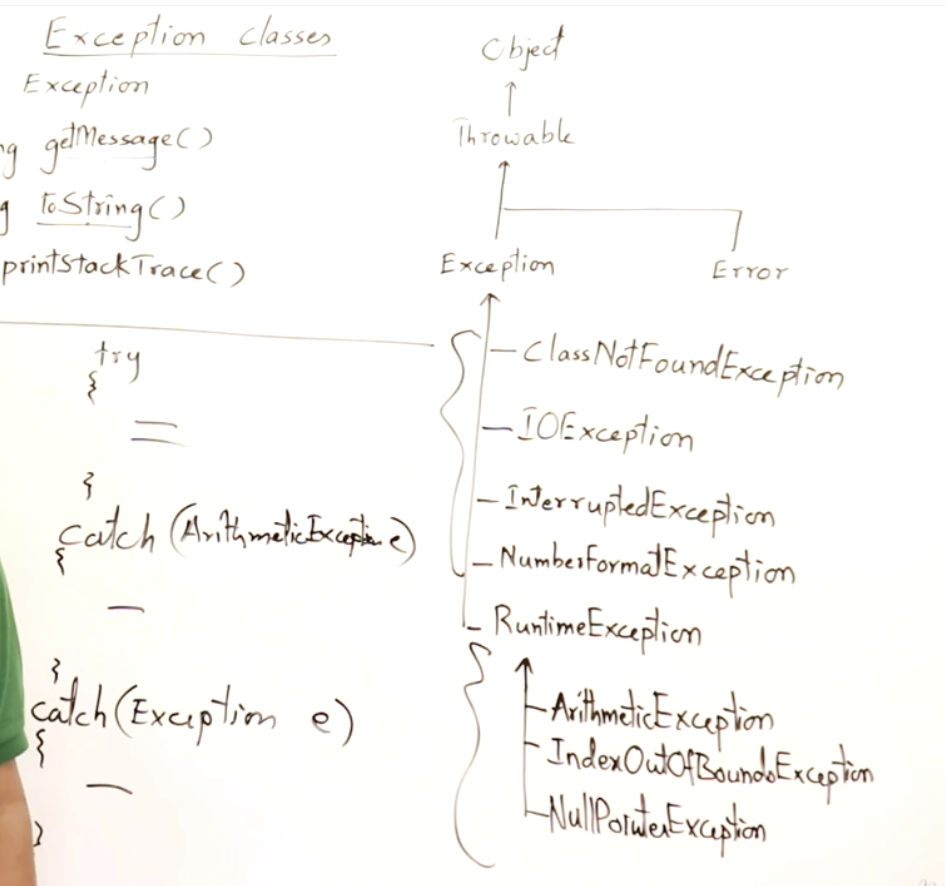 Exception classes
Exception
ng getMessage()
g toString()
printStackTrace()
try
{
}
catch (ArithmeticException e)
{
}
catch(Exception e)
{
}
Object
Throwable
Exception Error
ClassNotFoundException
IOException
InterruptedException
NumberFormatException
RuntimeException
ArithmeticException
IndexOutOfBoundsException
NullPointerException